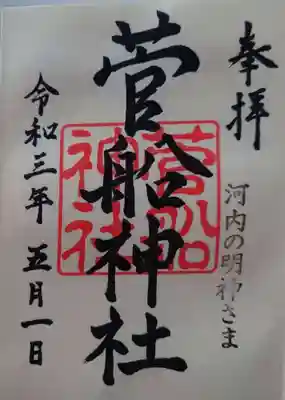 奉拝
河内の明神さま
菅船神社
菅船神社
令和三年 五月一日